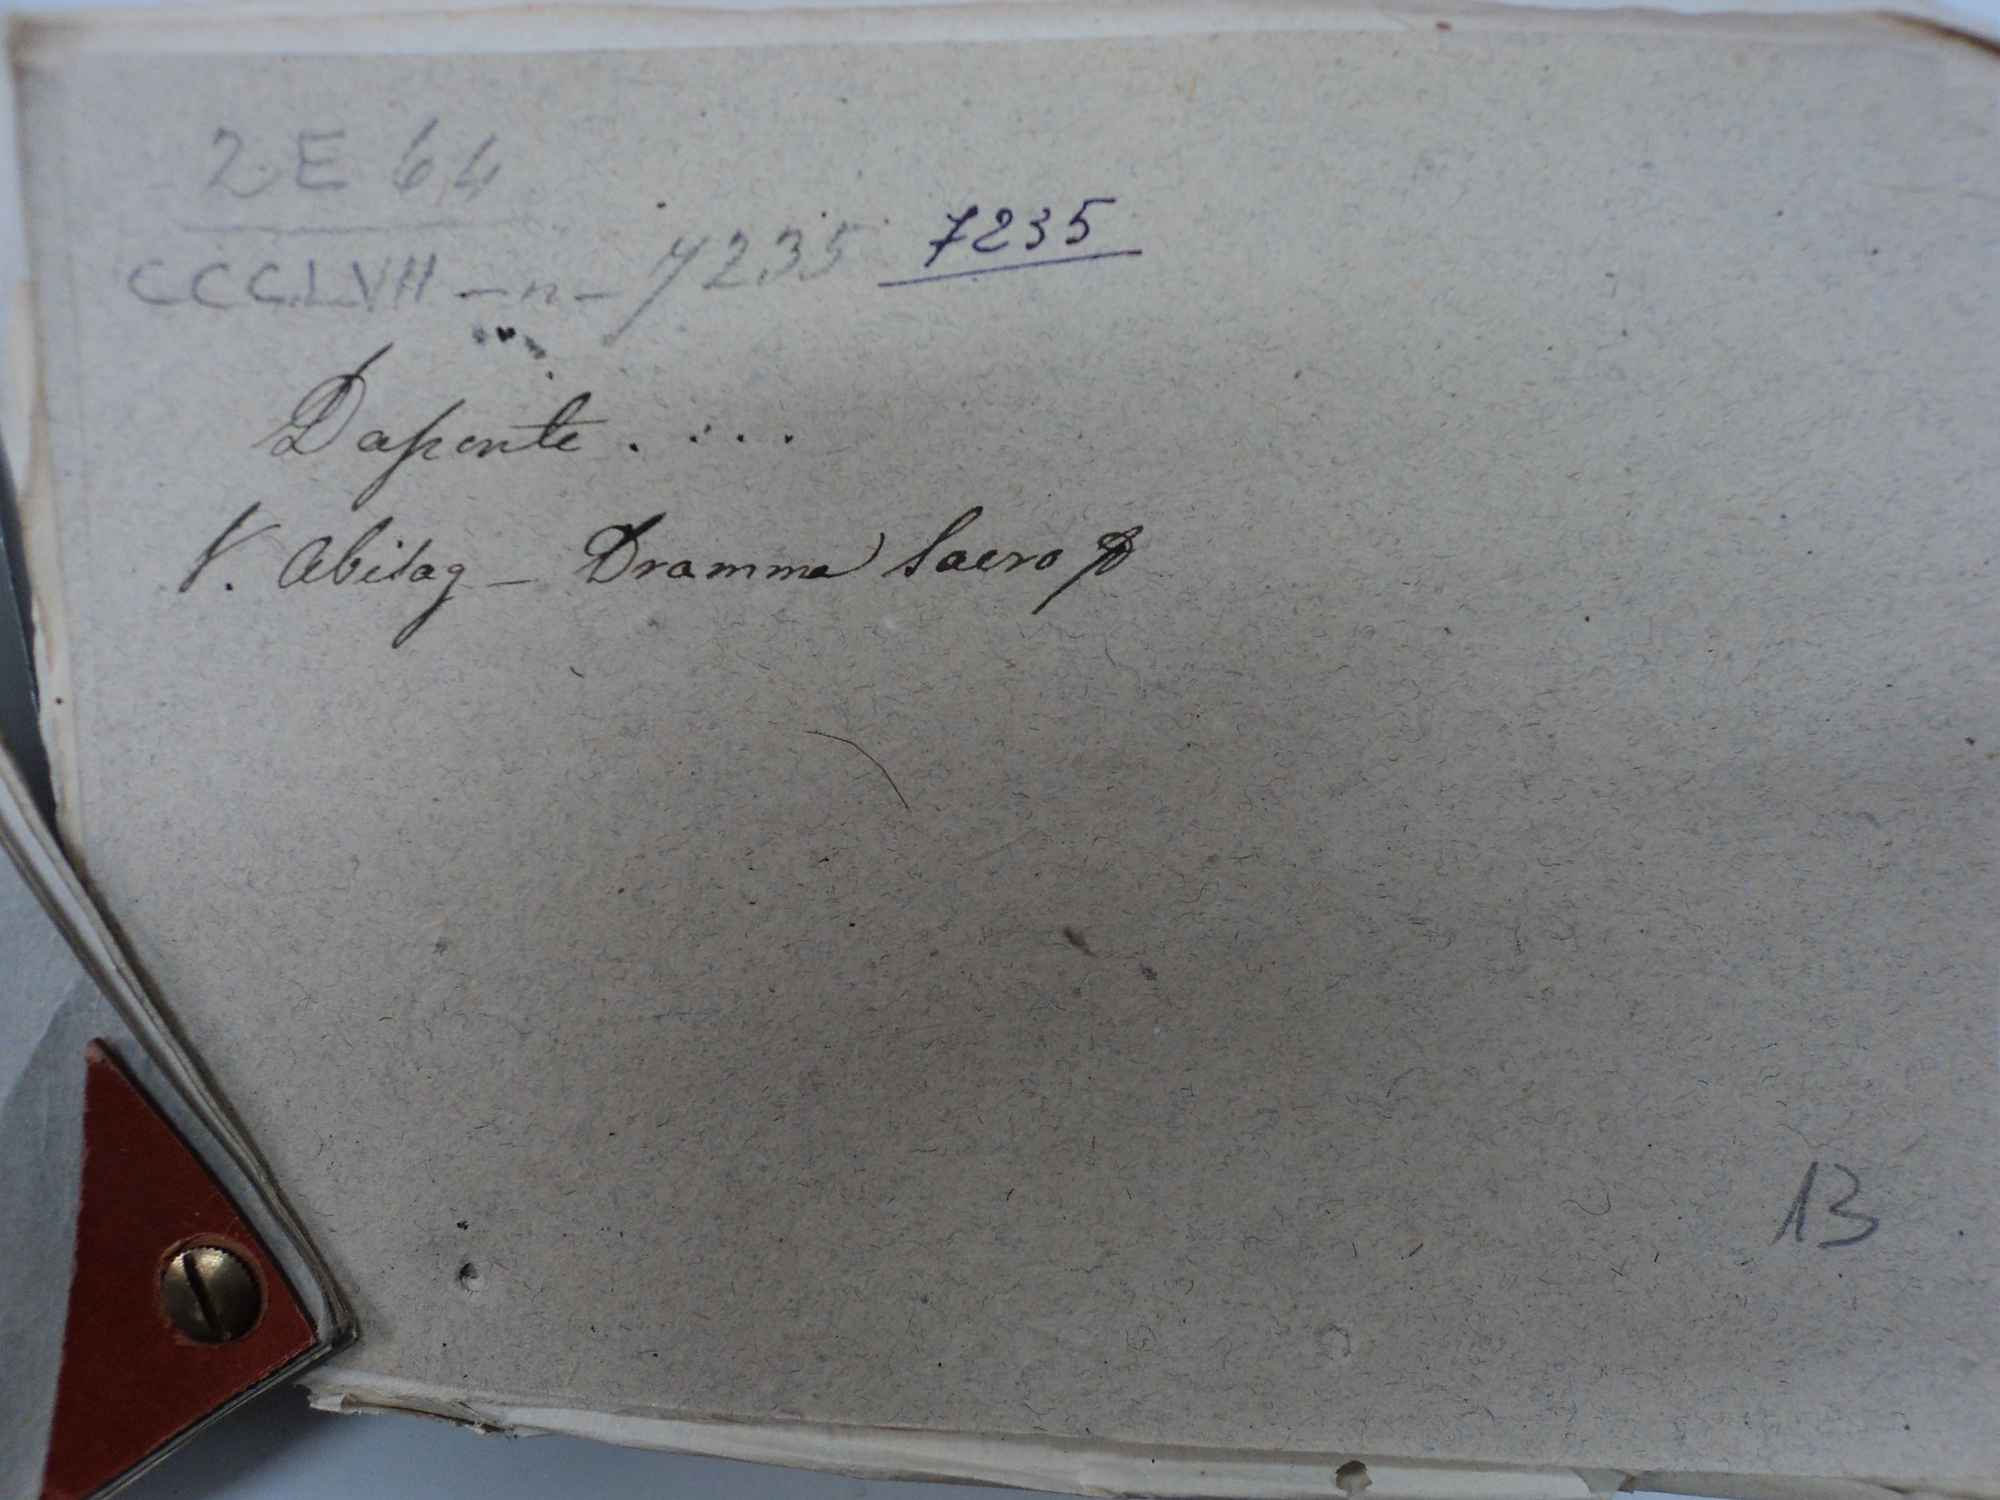 2 E 64
CCCLVII - n - 7235 7235
Daponte . . . .
V. Abisag - Dramma Sacro
13